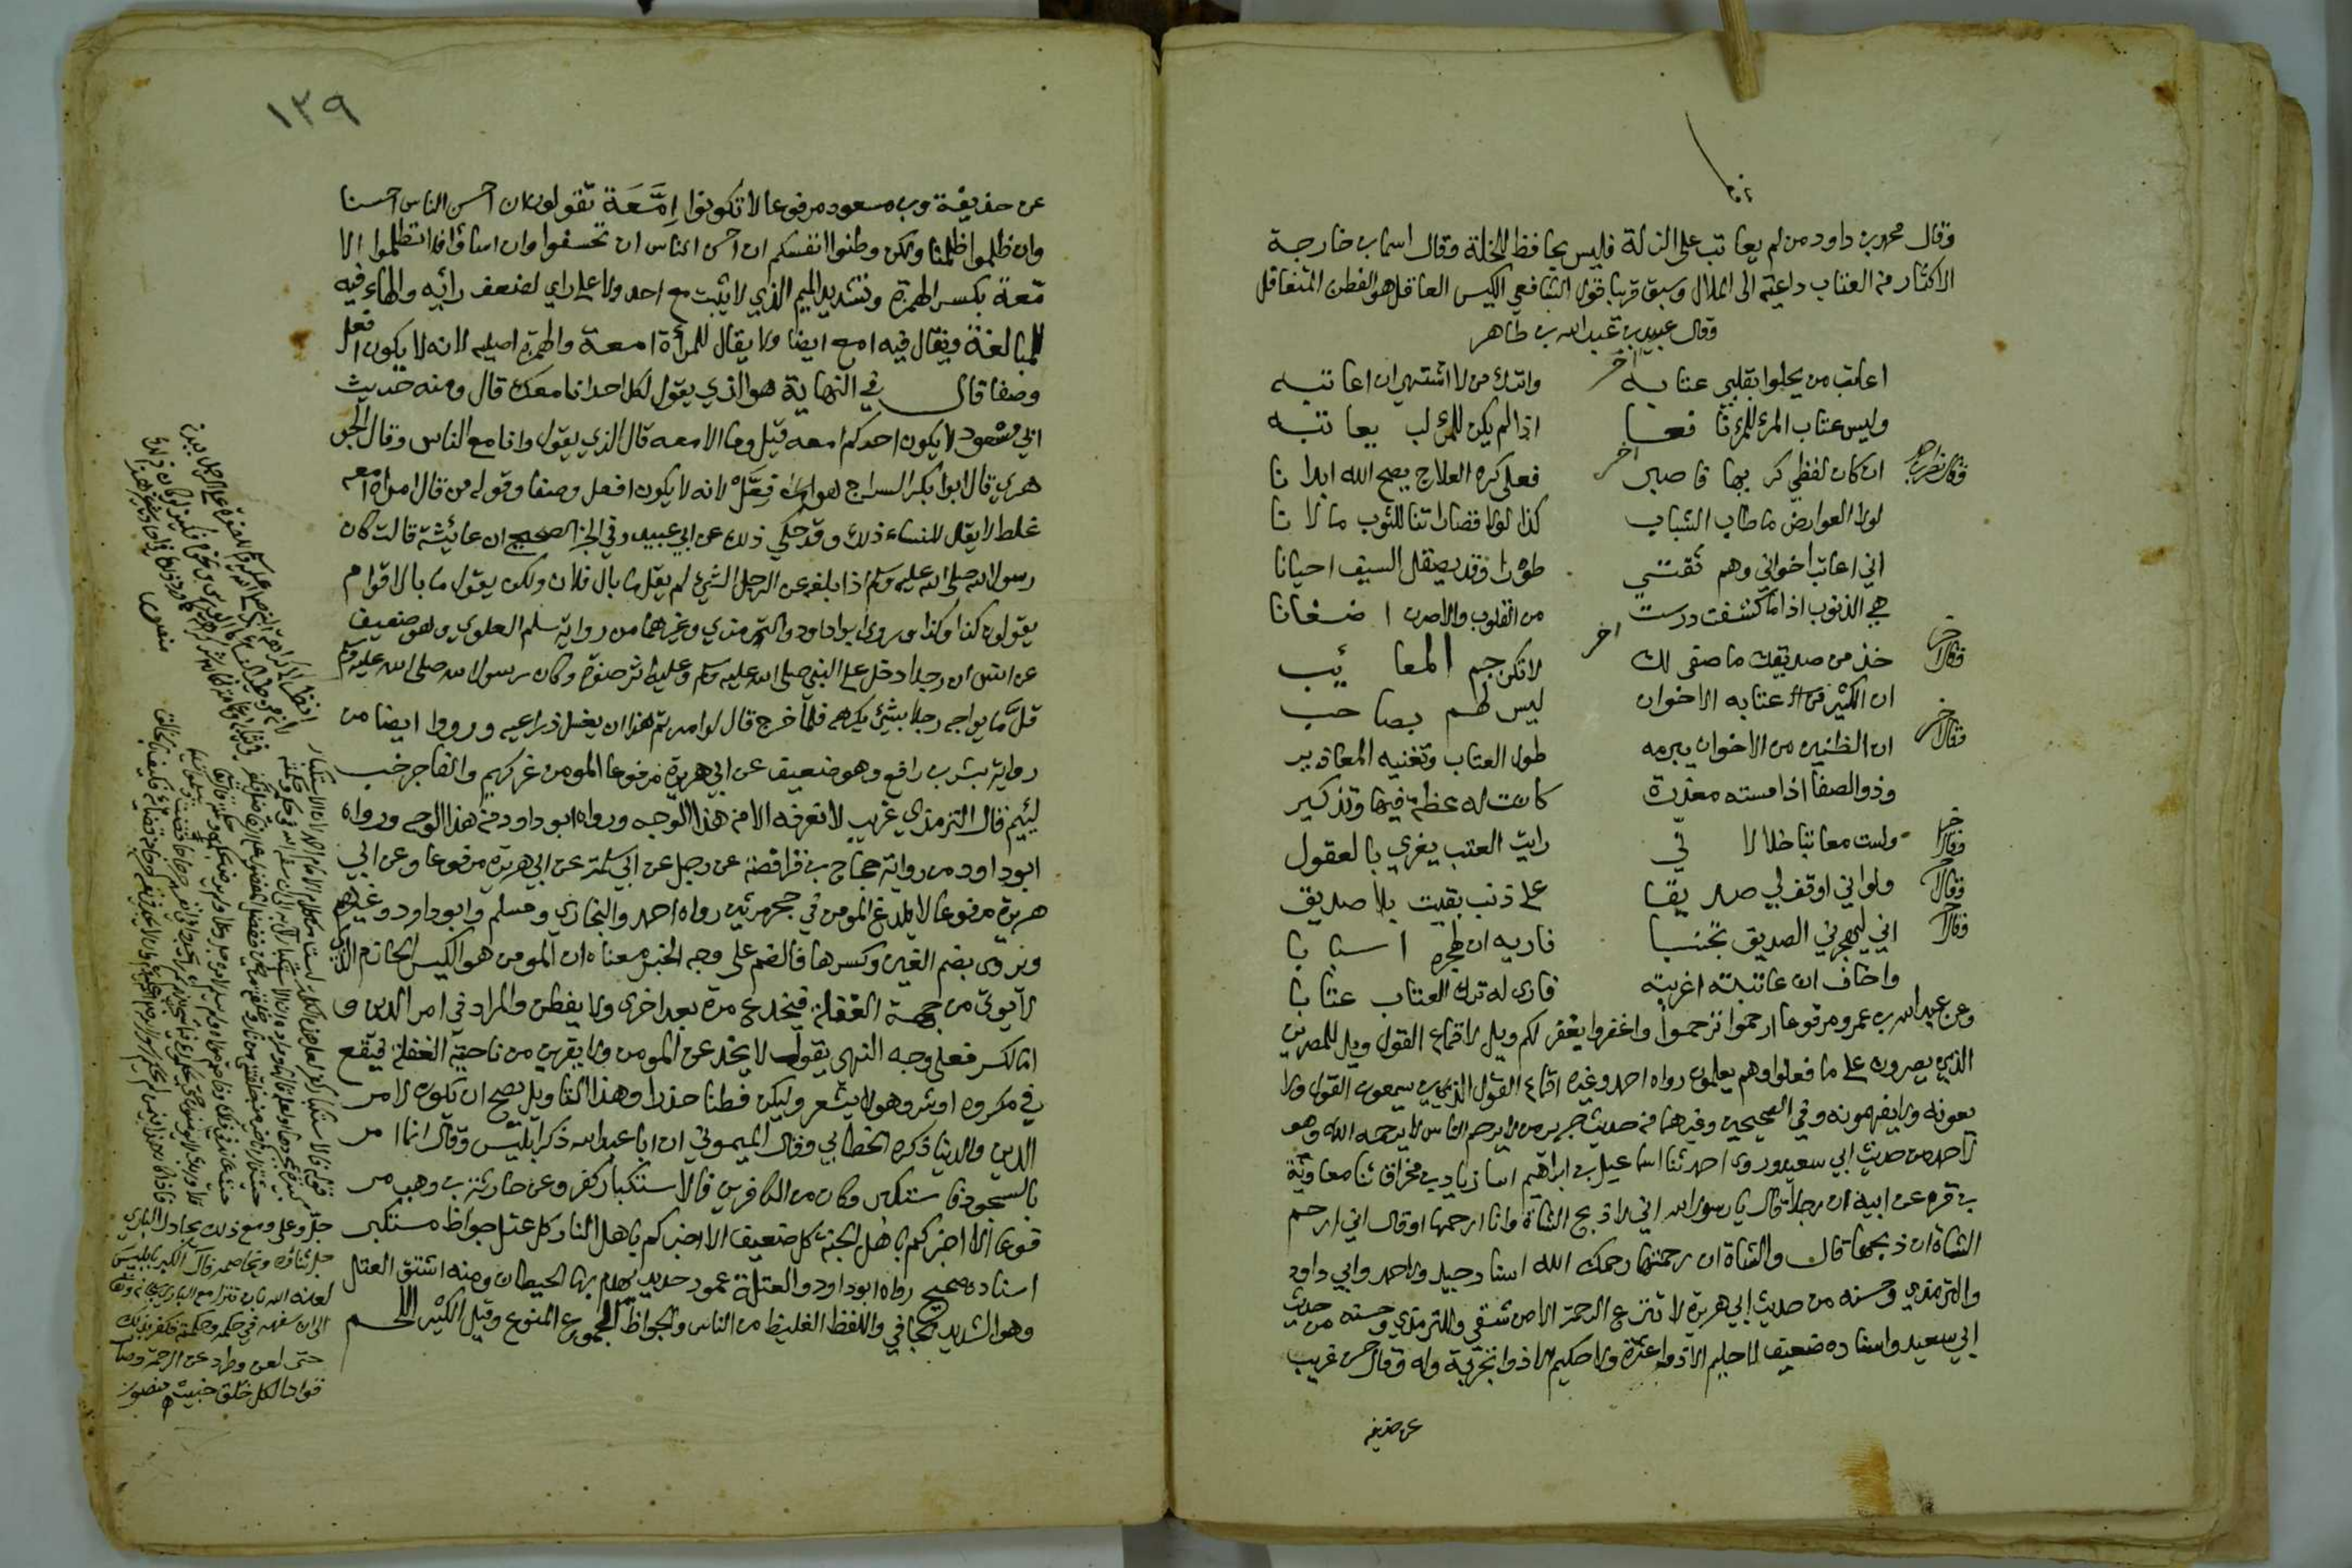 وقال محمد بن داود من لم يعاتب على الزلة فليس بحافظ للخلة وقال اسما بن خارجة
الاكثار من العتاب داعية الى الملال وسبق قريبا قول الشافعي الكيس العاقل هو الفطن المتغافل
وقال عبيد بن عبد الله بن طاهر
اعاتب من يحلوا بقلبي عتابه واترك من لا اشتهي ان اعاتبه
اخر
وليس عتاب المرء للمرء نافعا اذا لم يكن للمرء لب يعاتبه
وقال نصر بن احمد
ان كان لفظي كريها فاصبر فعلى كره العلاج يصح الله ابدانا
اخر
لولا العوارض ما طاب الشباب كذا لولا قصارتنا للثوب ما لانا
اني اعاتب اخواني وهم ثقتي طورا وقد يصقل السيف احيانا
هي الذنوب اذا ما كشفت درست من القلوب والا صرن اضغانا
وقال اخر
خذ من صديقك ما صفى لك لا تكن جم المعائب
اخر
ان الكثير عتابه الاخوان ليس لهم بصاحب
وقال اخر
ان الظنين من الاخوان يبرمه طول العتاب وتغنيه المعاذير
وذو الصفا اذا مسته معذرة كانت له عظة فيها وتذكير
وقال اخر
ولست معاتبا خلا لاني رايت العتب يغري بالعقول
وقال اخر
ولو اني اوقف لي صديقا على ذنب بقيت بلا صديق
وقال اخر
اني ليهجرني الصديق تجنبا فاريه ان لهجره اسبابا
واخاف ان عاتبته اغريته فارى له ترك العتاب عتابا
وعن عبد الله بن عمرو مرفوعا ارحموا ترحموا واغفروا يغفر لكم ويل لاقماع القول ويل للمصرين
الذين يصرون على ما فعلوا وهم يعلمون رواه احمد وغيره اقماع القول الذين يسمعون القول ولا
يعونه ولا يفهمونه وفي الصحيحين وغيرهما من حديث جرير من لا يرحم الناس لا يرحمه الله وهو
لاحمد من حديث ابي سعيد وروى احمد ثنا اسماعيل بن ابراهيم انبا زياد بن مخراق ثنا معاوية
بن قرة عن ابيه ان رجلا قال يا رسول الله اني لاذبح الشاة وانا ارحمها او قال اني ارحم
الشاة ان ذبحها قال والشاة ان رحمتها رحمك الله اسناد جيد ولاحمد وابي داود
والترمذي وحسنه من حديث ابي هريرة لا تنزع الرحمة الا من شقي وللترمذي وحسنه من حديث
ابي سعيد واسناده ضعيف لا حليم الا ذو عثرة ولا حكيم الا ذو تجربة وله وقال حسن غريب
عن حذيفة
١٣٩
عن حذيفة وبن مسعود مرفوعا لا تكونوا اِمَّعَة تقولون ان احسن الناس احسنا
وان ظلموا ظلمنا ولكن وطنوا انفسكم ان احسن الناس ان تحسنوا وان اساؤا فلا تظلموا الا
معة بكسر الهمزة وتشديد الميم الذي لا يثبت مع احد ولا على راي لضعف رائيه والهاء فيه
للمبالغة ويقال فيه امع ايضا ولا يقال للمرأة امعة والهمزة اصليه لانه لا يكون افعل
وصفا قال في النهاية هو الذي يقول لكل احد انا معك قال ومنه حديث
ابن مسعود لا يكون احدكم امعه قيل وما الامعه قال الذي يقول وانا مع الناس وقال الجو
هري قال ابو بكر السراج هو فِعَّل لانه لا يكون افعل وصفا وقول من قال امراة امعه
غلط لا يقال للنساء ذلك وقد حكي ذلك عن ابي عبيد وفي الخبر الصحيح ان عائشة قالت كان
رسول الله صلى الله عليه وسلم اذا بلغه عن الرجل الشيئ لم يقل ما بال فلان ولكن يقول ما بال اقوام
يقولون كذا وكذا وروى ابو داود والترمذي وغيرهما من رواية سلم العلوي وهو ضعيف
عن انس ان رجلا دخل على النبي صلى الله عليه وسلم وعليه اثر صفرة وكان رسول الله صلى الله عليه وسلم
قل ما يواجه رجلا بشيئ يكرهه فلما خرج قال لو امرتم هذا ان يغسل ذراعيه ورووا ايضا من
رواية بشر بن رافع وهو ضعيف عن ابي هريرة مرفوعا المومن غر كريم والفاجر خب
لئيم قال الترمذي غريب لا نعرفه الا من هذا الوجه ورواه ابو داود من هذا الوجه ورواه
ابو داود من رواية حجاج بن فرافصة عن رجل عن ابي سلمة عن ابي هريرة مرفوعا وعن ابي
هريرة مرفوعا لا يلدغ المومن في جحر مرتين رواه احمد والبخاري ومسلم وابو داود وغيرهم
ويروى بضم الغين وكسرها فالضم على وجه الخبر معناه ان المومن هو الكيس الحازم الذي
لا يوتى من جهة الغفلة فيخدع مرة بعد اخرى ولا يفطن والمراد في امر الدين و
اما الكسر فعلى وجه النهي يقول لا يخدعن المومن ولا يقربن من ناحية الغفلة فيقع
في مكروه او شر وهو لا يشعر وليكن فطنا حذرا وهذا التاويل يصح ان يكون لامر
الدين والدنيا ذكره الخطابي وقال الميموني ان ابا عبد الله ذكر ابليس وقال انما امر
بالسجود فاستكبر وكان من الكافرين فالاستكبار كفر وعن حارثة بن وهب مر
فوعا الا اخبركم باهل الجنة كل ضعيف الا اخبركم باهل النار كل عتل جواظ مستكبر
اسناده صحيح رواه ابو داود والعتلة عمود حديد يهدم بها الحيطان ومنه اشتق العتل
وهو الشديد الجافي واللفظ الغليظ من الناس والجواظ الجموع المنوع وقيل الكثير اللحم
جل وعلى ومع ذلك يجادل الباري
جل ثناؤه ويخاصمه فال الكبر بابليس
لعنه الله بان تنزا مع الباري
الى ان سفهه في حكمه وحكمته فكفر بذلك
حتى لعن وطرد عن الرحمة وصار
قوادا لكل خلق خبيث منصور